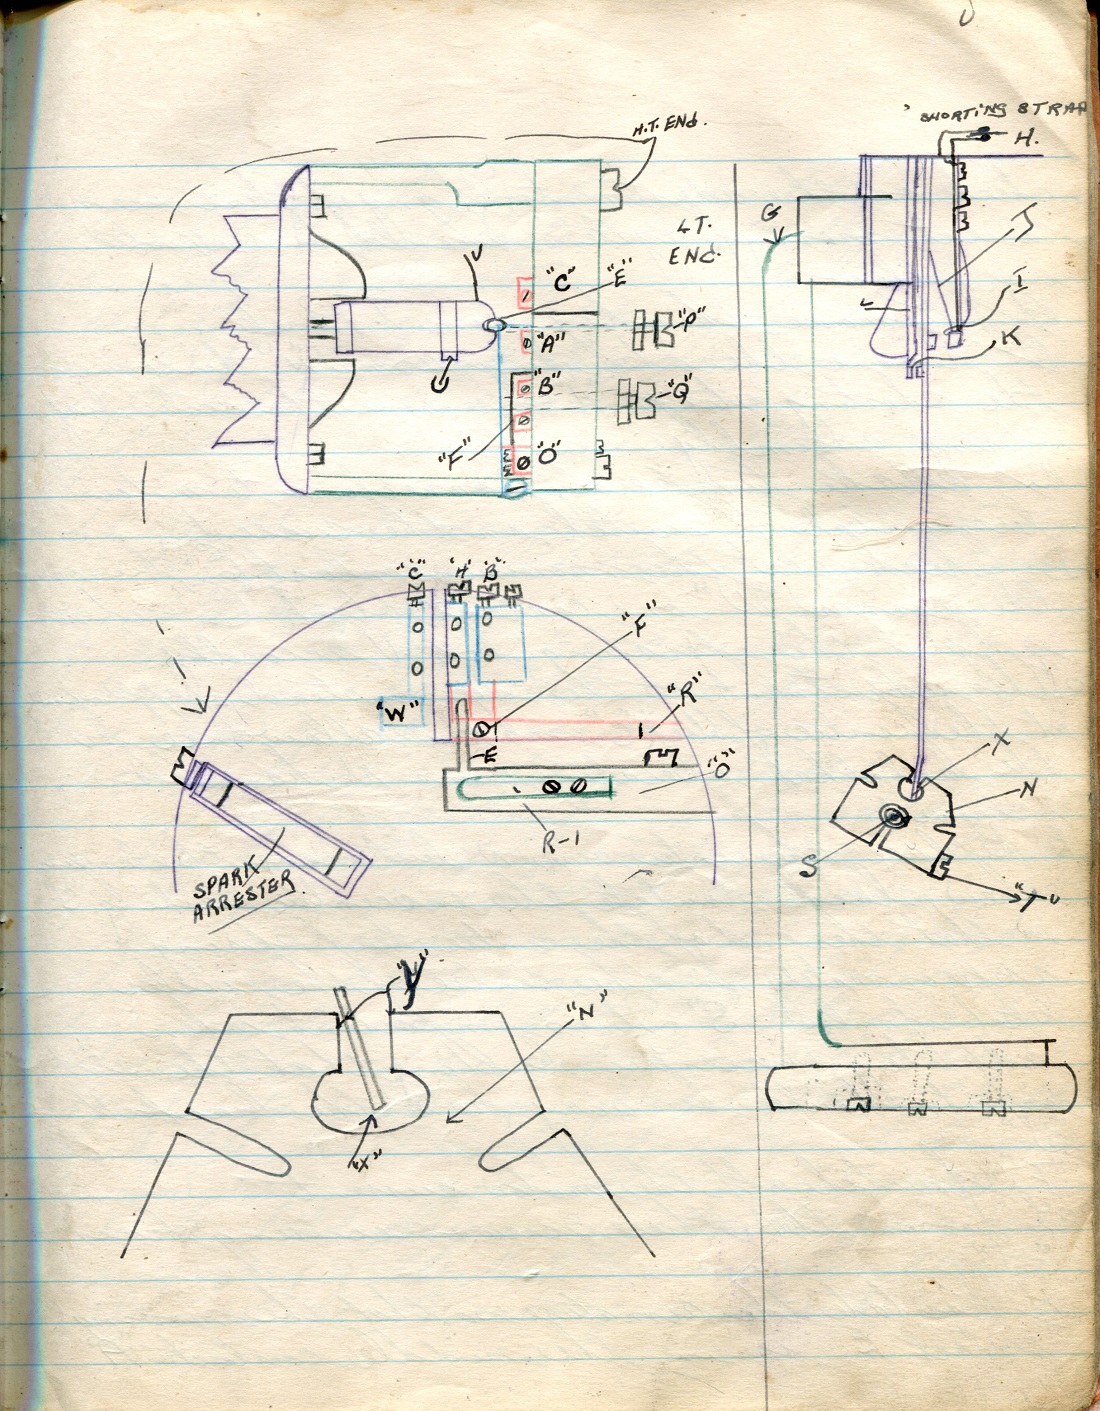 H.T. END.
"SHORTING STRAP
H.
G
L.T.
END.
J
"C"
"E"
I
"P"
"A"
K
"B"
"Q"
G
"F"
"O"
"C"
"H"
"B"
"F"
"R"
"W"
E
"O"
X
N
R-1
S
SPARK
ARRESTER.
"T"
"Y"
"N"
"X"